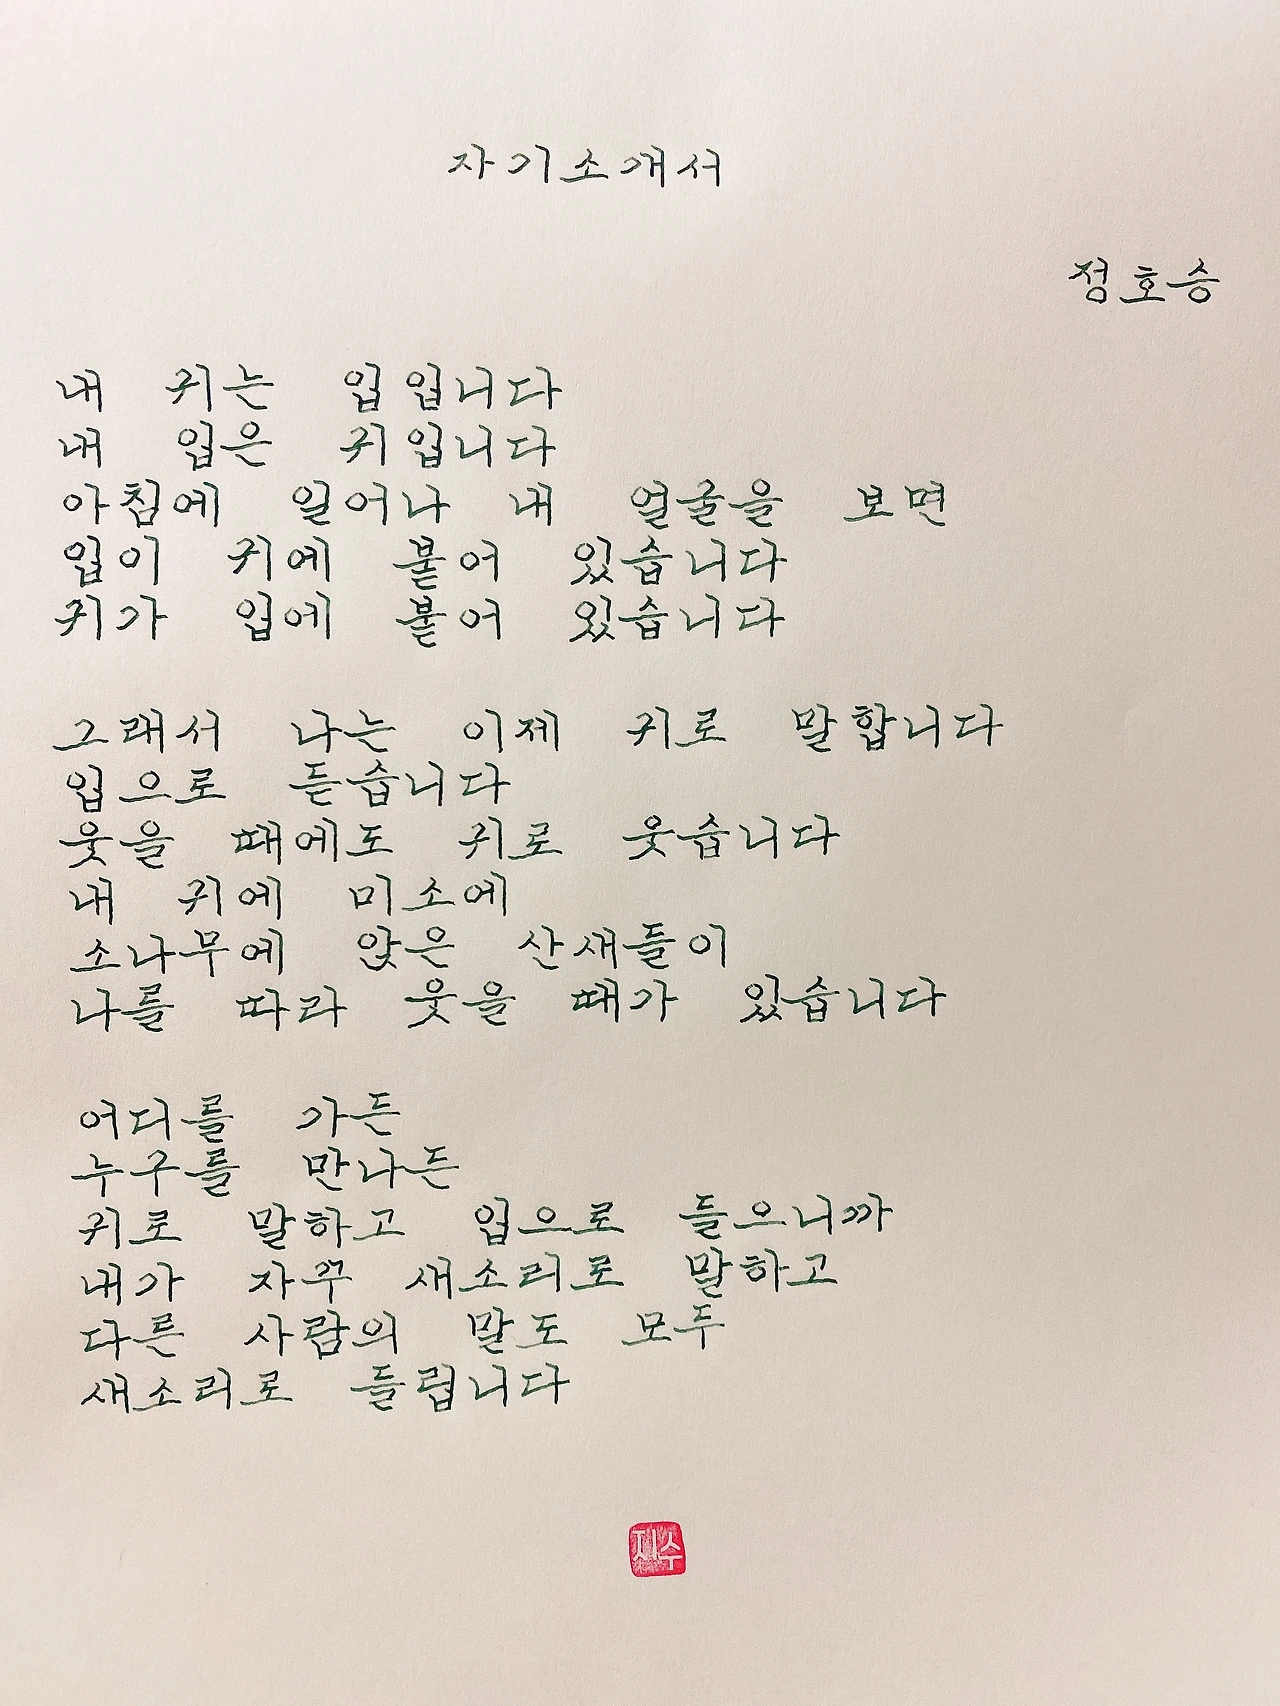 자기소개서
정호승
내 귀는 입입니다
내 입은 귀입니다
아침에 일어나 내 얼굴을 보면
입이 귀에 붙어 있습니다
귀가 입에 붙어 있습니다
그래서 나는 이제 귀로 말합니다
입으로 듣습니다
웃을 때에도 귀로 웃습니다
내 귀에 미소에
소나무에 앉은 산새들이
나를 따라 웃을 때가 있습니다
어디를 가든
누구를 만나든
귀로 말하고 입으로 들으니까
내가 자꾸 새소리로 말하고
다른 사람의 말도 모두
새소리로 들립니다
재수